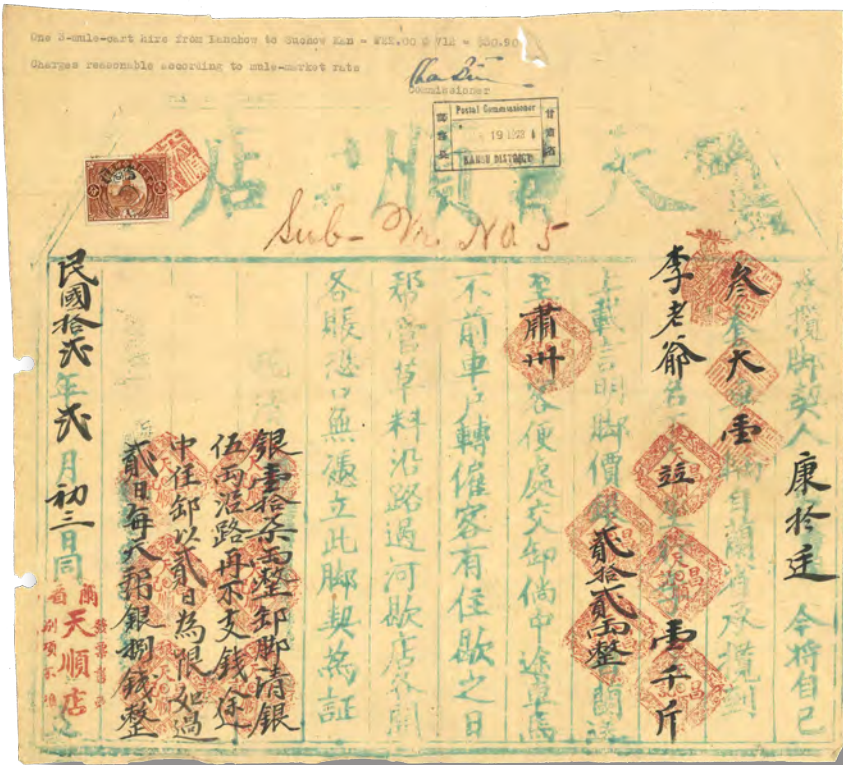 One 3-mule-cart hire from Lanchow to Suchow Kan - W22.00 @ 712 = $30.90
Charges reasonable according to mule-market rate
Commissioner
Postal Commissioner
19 1923
KANSU DISTRICT
天 順店
Sub-Vr. No 5
承攬脚契人康於廷今將自己
叁套大車壹輛自蘭省承攬到
李老爺名下 壹千斤
上載言明脚價銀貳拾貳兩整
至肅州客便處交卸倘中途車馬
不前車戶轉僱客有住歇之日
帮管草料沿路過河歇店各開
各賬恐口無憑立此脚契為証
銀壹拾柒兩整卸脚清銀
伍兩沿路再不支錢途
中住卸以貳日為限如過
貳日每天帮銀捌錢整
民國拾貳年貳月初三日同
天順店